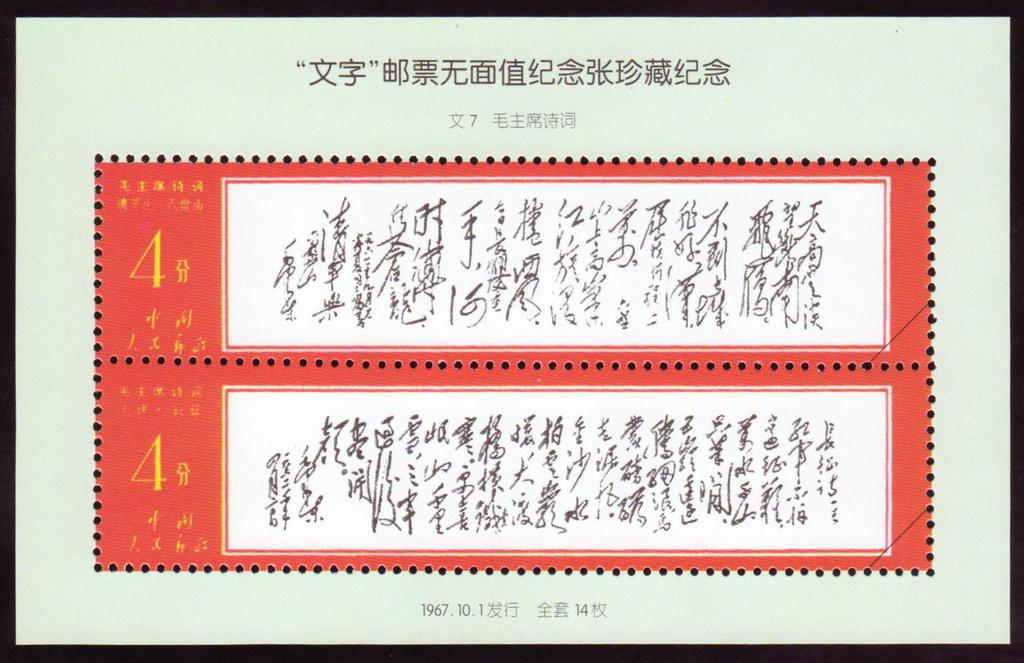 “文字”邮票无面值纪念张珍藏纪念
文7 毛主席诗词
毛主席诗词
清平乐·六盘山
4分
中国
人民邮政
天高云淡
望断南
飞雁
不到长城
非好汉
屈指行程二
万
六盘
山上高峰
红旗漫
卷西风
今日长缨在
手
何
时缚住
苍龙
清平乐
六盘山
毛泽东
毛主席诗词
七律·长征
4分
中国
人民邮政
长征诗一首
红军不怕
远征难
万水千山
只等闲
五岭逶迤
腾细浪乌
蒙磅礴
走泥丸
金沙水
拍云崖
暖大渡
桥横铁
索寒更喜
岷山千里
雪三军
过后
尽开
颜
毛泽东
1967.10.1发行 全套14枚